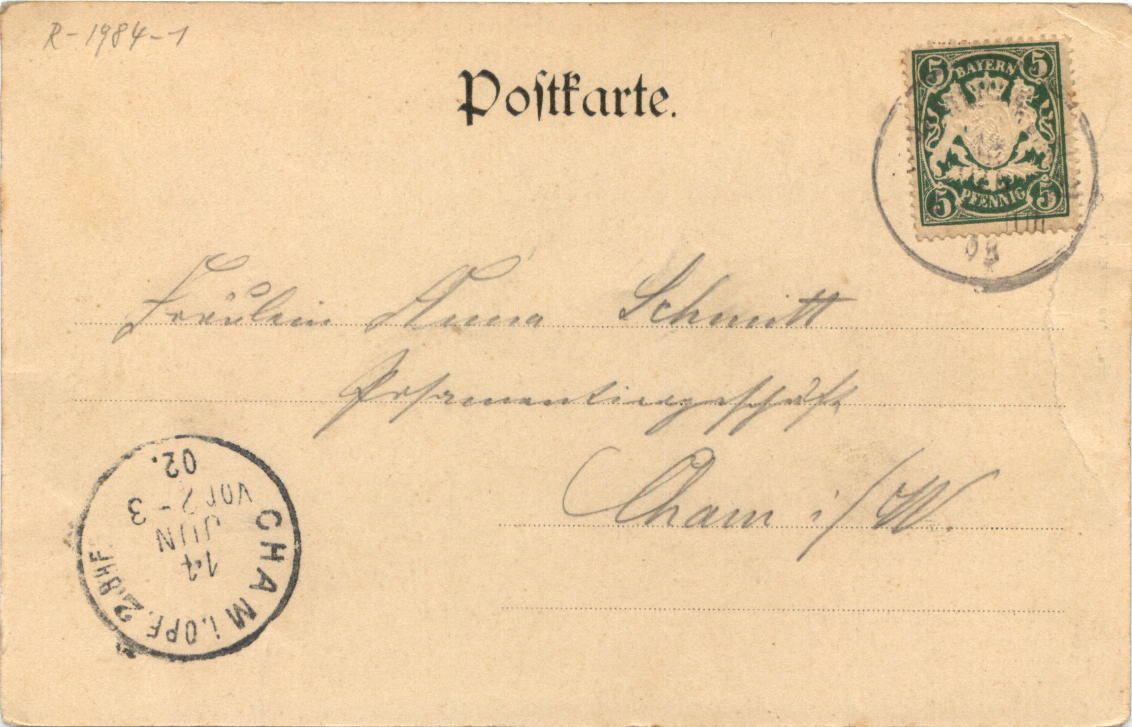 R-1984-1
Postkarte.
5 BAYERN 5
5 PFENNIG 5
Fräulein Anna Schmitt
Posamentiergeschäft
Cham i/W.
CHAM i.OPF. 2.BHF.
14
JUN
VOR 2-3
02.